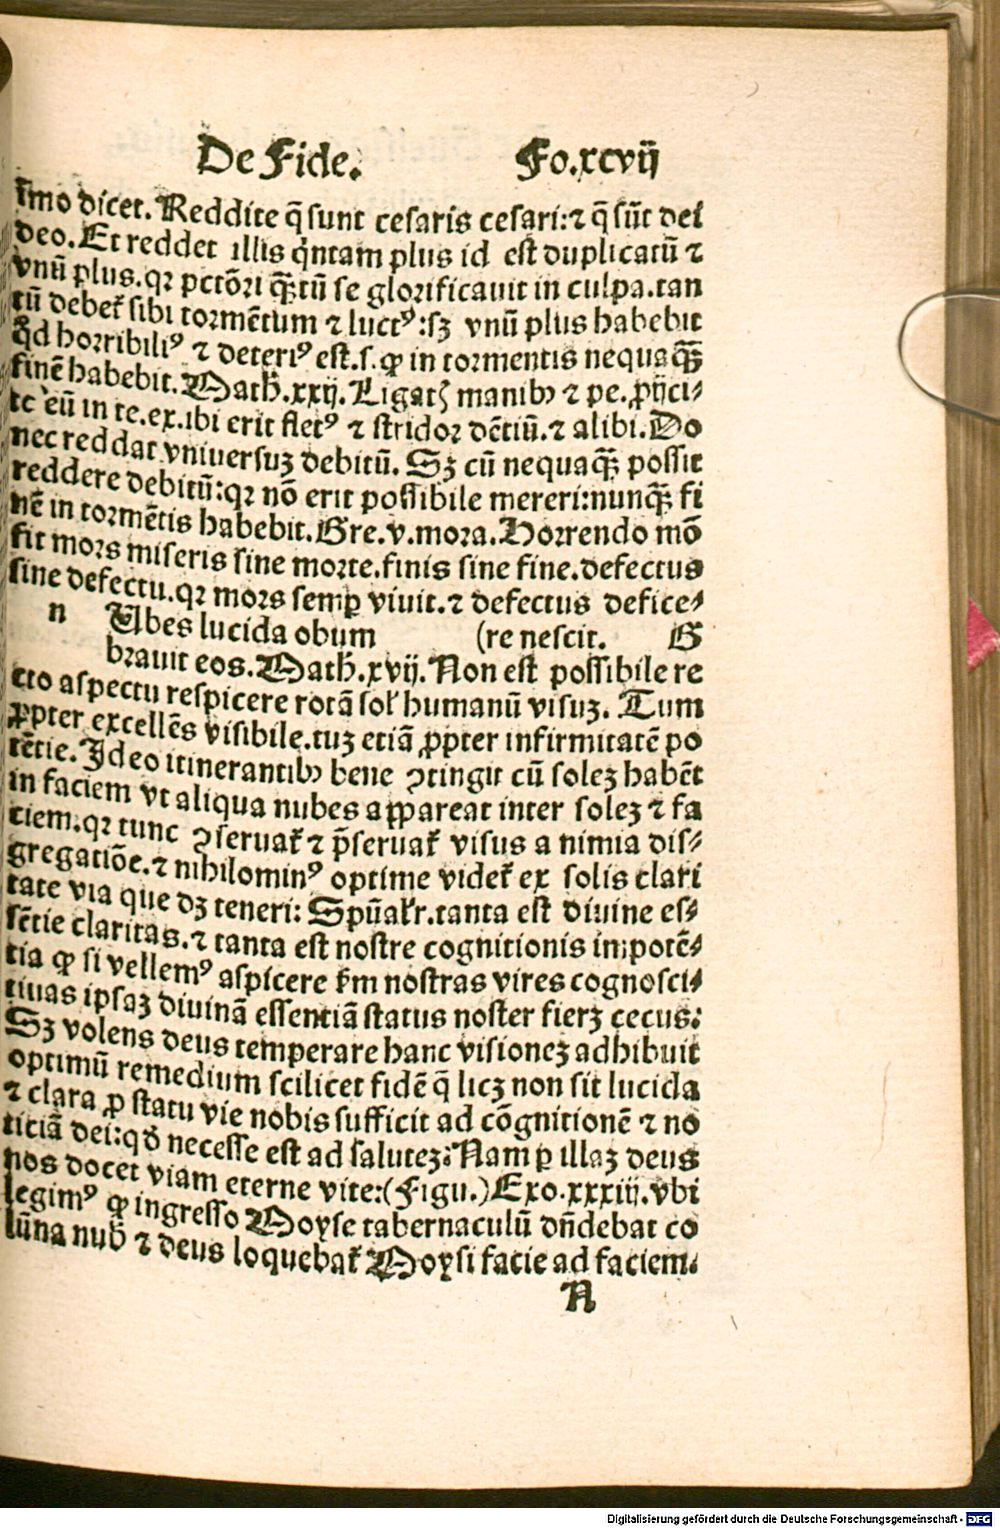 De Fide. Fo.xcvij
simo dicet. Reddite q̄ sunt cesaris cesari:⁊ q̄ sūt dei
deo. Et reddet illis q̇ntam plus id est duplicatū ⁊
vnū plus.qꝛ pctōꝛi qꝫ̄tū se gloꝛificauit in culpa.tan
tū debet̉ sibi toꝛmētum ⁊ luctꝰ:sꝫ vnū plus habebit
qd̄ hoꝛribiliꝰ ⁊ deteriꝰ est.s.ꝙ in toꝛmentis nequaqꝫ̄
finē habebit. Math̄.xxij. Ligatꝭ manibꝰ ⁊ pe.ꝓijci⸗
te eū in te.ex.ibi erit fletꝰ ⁊ stridoꝛ dētiū.⁊ alibi. Do
nec reddat vniuersuꝫ debitū. Sꝫ cū nequaqꝫ̄ possit
reddere debitū:qꝛ nō erit possibile mereri:nunqꝫ̄ fi
nē in toꝛmētis habebit. Gre.v.moꝛa. Hoꝛrendo mō
fit moꝛs miseris sine moꝛte.finis sine fine.defectus
sine defectu.qꝛ moꝛs semꝑ viuit.⁊ defectus defice⸗
n Ubes lucida obum (re nescit. G
bꝛauit eos. Math̄.xvij. Non est possibile re
cto aspectu respicere rotā sol̉ humanū visuꝫ. Tum
ꝓpter excellēs visibile.tuꝫ etiā ꝓpter infirmitatē po
tētie. Ideo itinerantibꝰ bene ꝯtingit cū soleꝫ habēt
in faciem vt aliqua nubes appareat inter soleꝫ ⁊ fa
ciem.qꝛ tunc ꝯseruat̉ ⁊ p̄seruat̉ visus a nimia dis⸗
gregatiōe.⁊ nihilominꝰ optime videt̉ ex solis clari
tate via que dꝫ teneri: Spūal̉r.tanta est diuine es⸗
sētie claritas.⁊ tanta est nostre cognitionis impotē⸗
tia ꝙ si vellemꝰ aspicere ẜm nostras vires cognosci⸗
tiuas ipsaꝫ diuinā essentiā status noster fierꝫ cecus:
Sꝫ volens deus temperare hanc visioneꝫ adhibuit
optimū remedium scilicet fidē q̄ licꝫ non sit lucida
⁊ clara ꝓ statu vie nobis sufficit ad cōgnitionē ⁊ no
ticiā dei:qd̄ necesse est ad saluteꝫ: Nam ꝑ illaꝫ deus
nos docet viam eterne vite:(Figu.) Exo.xxxiij.vbi
legimꝰ ꝙ ingresso Moyse tabernaculū dn̄debat co
lūna nub̄ ⁊ deus loquebat̉ Moysi facie ad faciem.
N
Digitalisierung gefördert durch die Deutsche Forschungsgemeinschaft - DFG